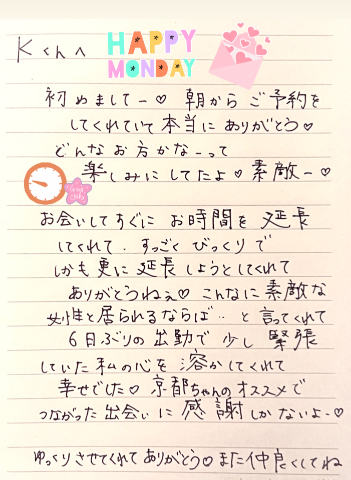 Kくんへ
HAPPY
MONDAY
初めましてー♡ 朝から ご予約を
してくれていて本当に ありがとう♡
どんな お方かなーって
楽しみに してたよ♡ 素敵ー♡
お会いしてすぐに お時間を 延長
してくれて、すっごく びっくりで
しかも更に 延長しようとしてくれて
ありがとうねぇ♡ こんなに 素敵な
女性と居られるならば… と 言ってくれて
6日ぶりの 出勤で 少し 緊張
していた 私の心を 溶かしてくれて
幸せでした♡ 京都ちゃんの オススメで
つながった 出会いに 感謝しかないよー♡
ゆっくりさせてくれて ありがとう♡ また仲良くしてね